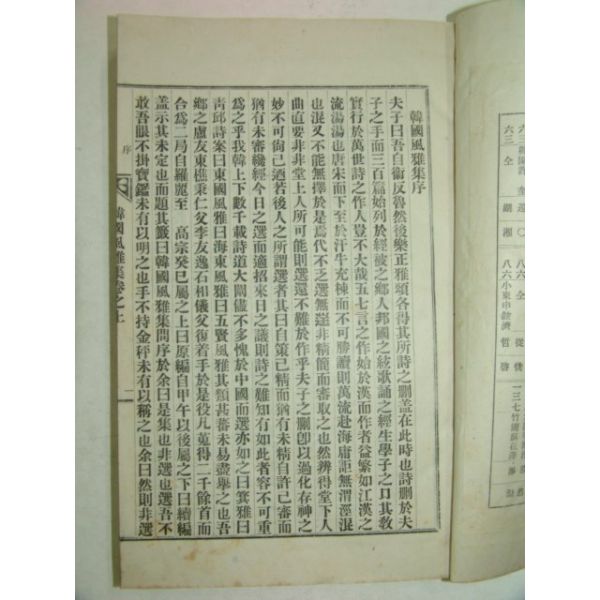 韓國風雅集序
夫子曰吾自衛反魯然後樂正雅頌各得其所詩之刪盖在此時也詩刪於夫
子之手而三百篇始列於經被之鄕人邦國之絃歌誦之經生學子之口其敎
實行於萬世詩之作人豈不大哉五七言之作始於漢而作者益繁如江漢之
流湯湯也唐宋而下至於汗牛充棟而不可勝讀則萬流赴海庸詎無渭涇混
也混又不能無擇於是爲代不乏選無選非精簡而審取之也然辨得堂下人
曲直要非堂上人所可能則選還不難於作乎夫子之刪卽以過化存神之
妙不可尙已酒若後人之所謂選者其曰自策已精而猶有未精自許已審而
猶有未審幾經今日之選而適招來日之議則詩之難知有如此者容不可重
爲之乎我韓上下數千載詩道大闡儘不多愧於中國而選亦如之曰箕雅曰
靑邱詩案曰東國風雅曰海東風雅曰五賢風雅其類甚蕃未易盡舉之也吾
鄕之盧友東樵秉仁父李友逸石相儀父復着手於是役凡蒐得二千餘首而
台爲二局自羅麗至 高宗癸巳屬之上曰原編自甲午以後屬之下曰續編
盖示其未定也而題其籤曰韓國風雅集問序於余曰是集也非選也選吾不
敢吾眼不掛寶鑑未有以明之也手不持金秤未有以稱之也余曰然則非選
序
韓國風雅集卷之上
一